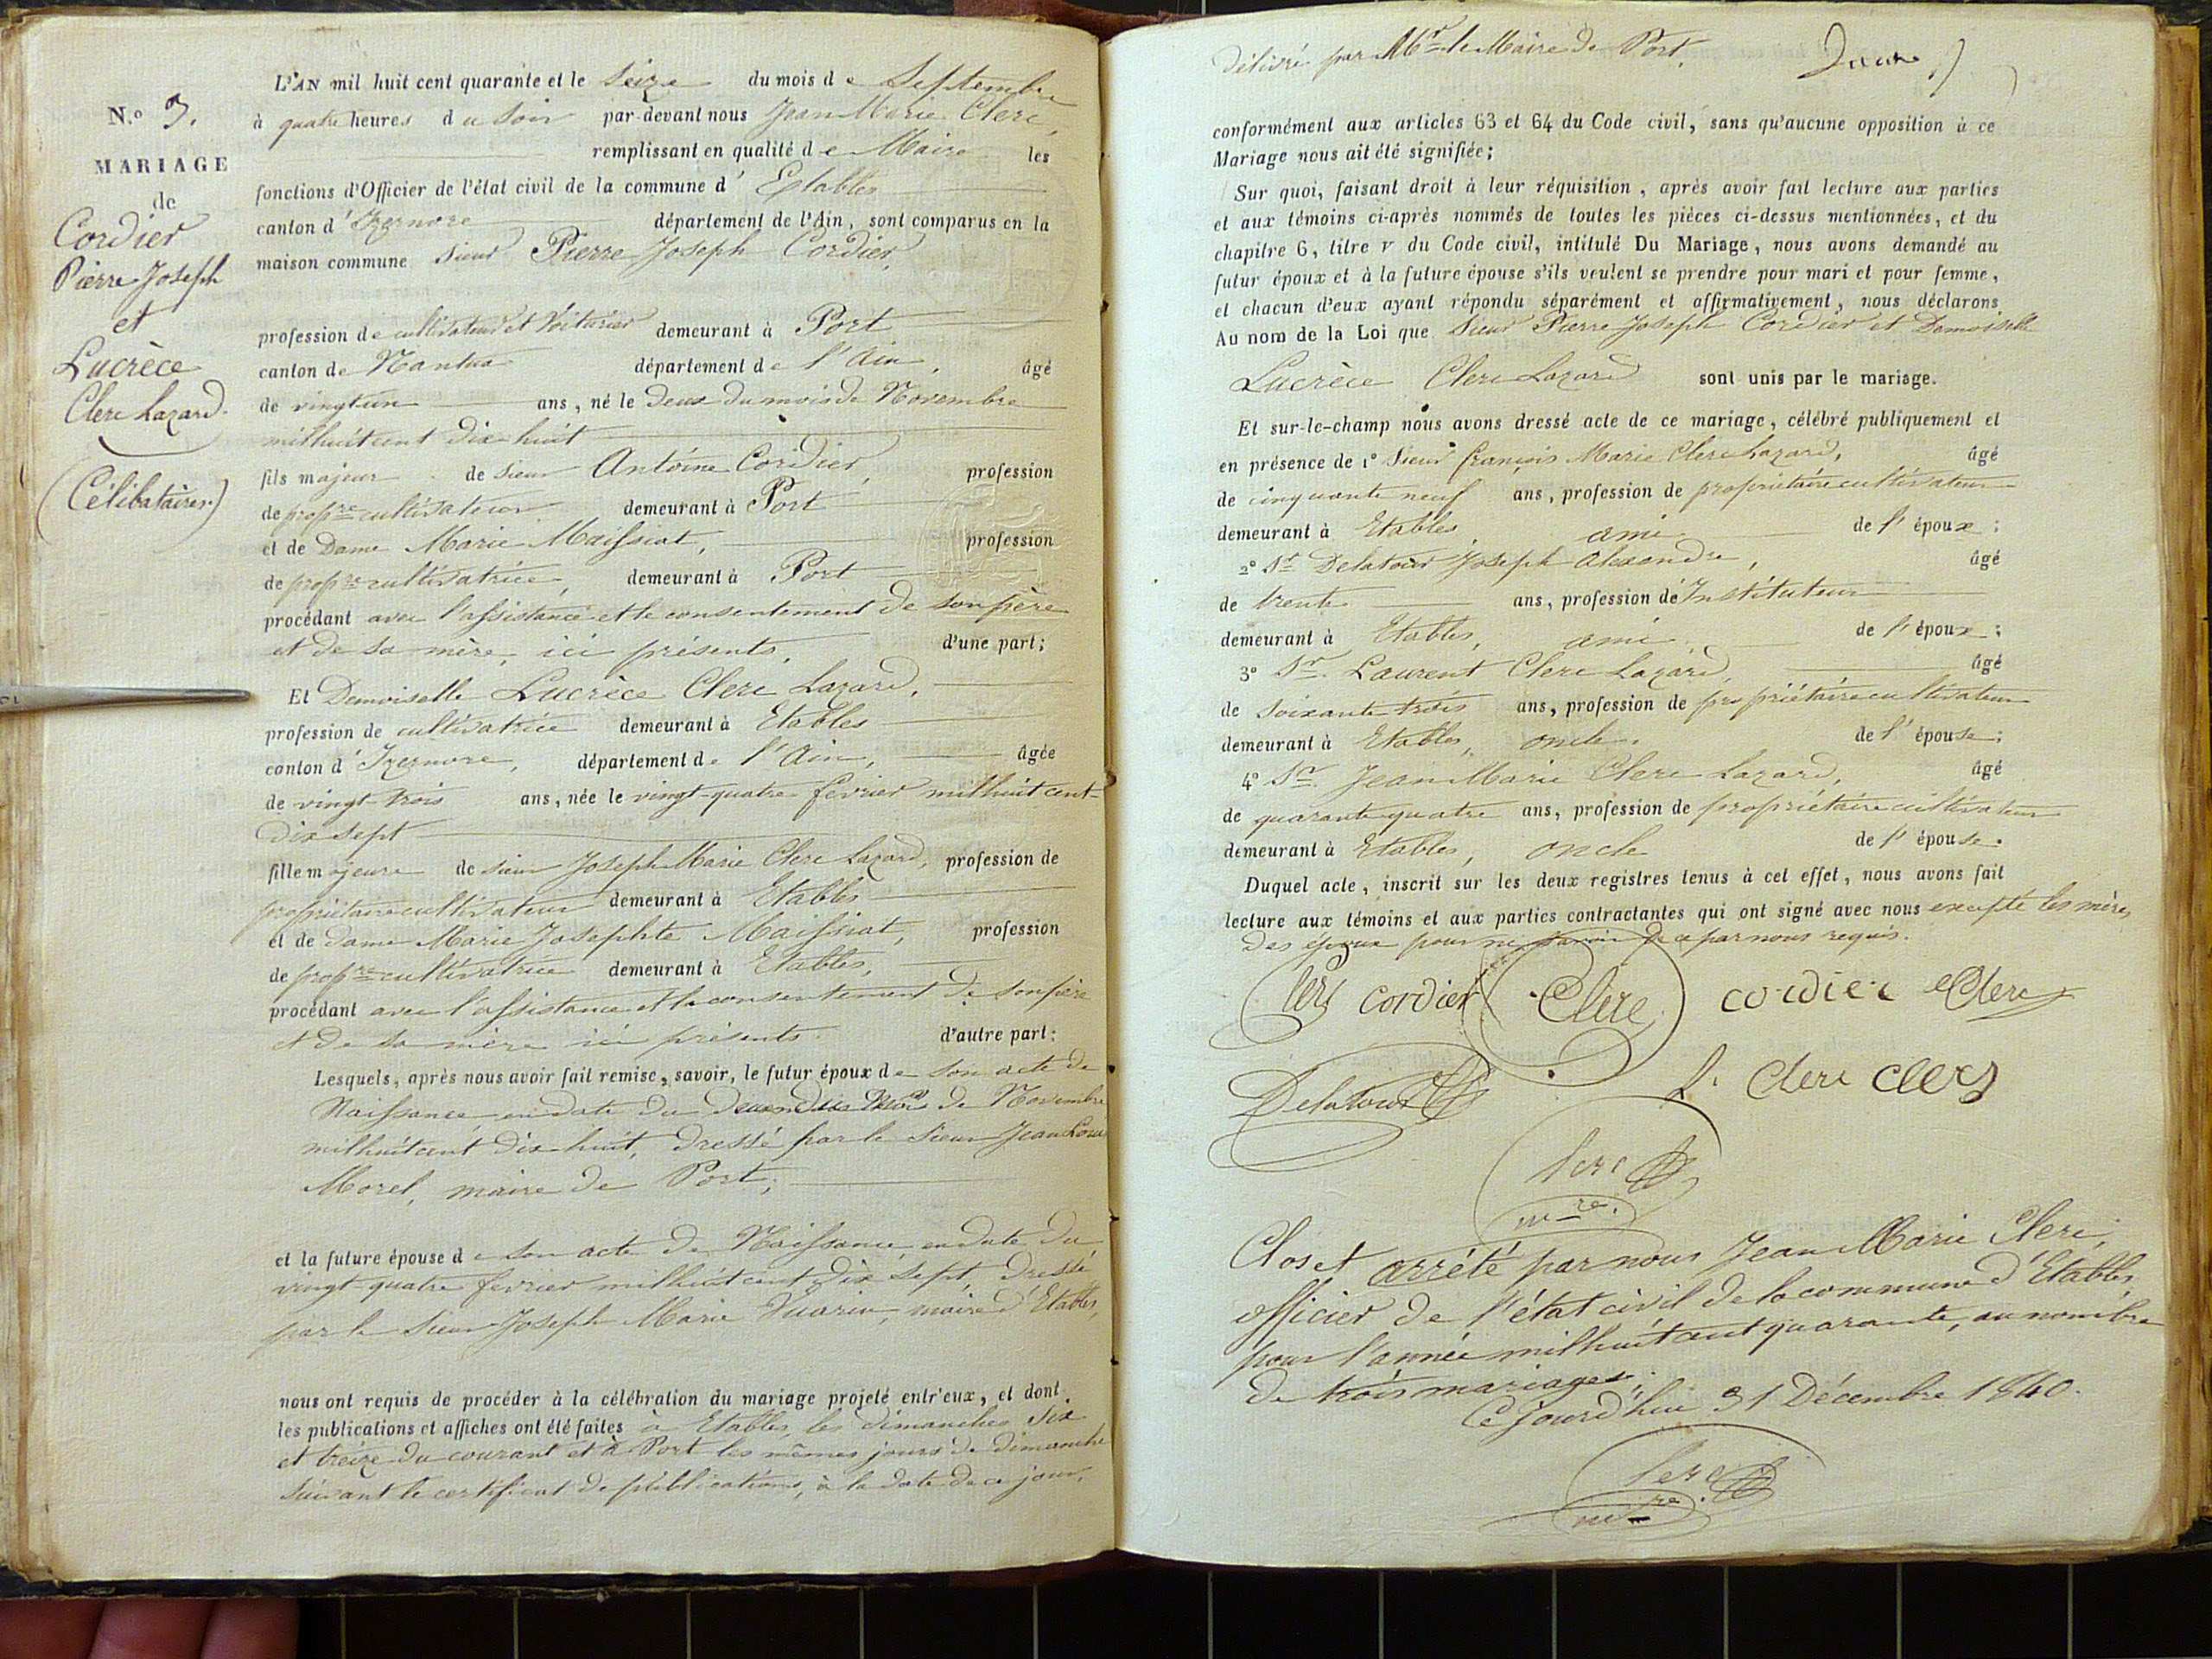 N.o 3.
MARIAGE
de
Cordier
Pierre Joseph
et
Lucrèce
Clerc Lazard.
(Célibataires)
L'AN mil huit cent quarante et le Seize du mois de Septembre
à quatre heures du Soir par-devant nous Jean Marie Clerc,
remplissant en qualité de Maire les
fonctions d'Officier de l'état civil de la commune d' Etables
canton d' Izernore département de l'Ain, sont comparus en la
maison commune Sieur Pierre Joseph Cordier,
profession de cultivateur et Voiturier demeurant à Port
canton de Nantua département de l'Ain, âgé
de vingt un ans, né le Deux du mois de Novembre
mil huit cent dix huit
fils majeur de Sieur Antoine Cordier, profession
de propre cultivateur demeurant à Port
et de Dame Marie Maissiat, profession
de propre cultivatrice, demeurant à Port
procédant avec l'assistance et le consentement de son père
et de sa mère, ici présents, d'une part;
Et Demoiselle Lucrèce Clerc Lazard,
profession de cultivatrice demeurant à Etables
canton d' Izernore, département de l'Ain, âgée
de vingt-trois ans, née le vingt-quatre février mil huit cent-
dix sept
fille majeure de sieur Joseph Marie Clerc Lazard, profession de
propriétaire cultivateur demeurant à Etables
et de dame Marie Josephte Maissiat, profession
de propre cultivatrice demeurant à Etables,
procédant avec l'assistance et le consentement de son père
et de sa mère ici présents. d'autre part:
Lesquels, après nous avoir fait remise, savoir, le futur époux de son acte de
Naissance, en date du deux du Mois de Novembre
mil huit cent dix-huit, dressé par le Sieur Jean Louis
Morel, maire de Port;
et la future épouse de son acte de Naissance, en date du
vingt-quatre février mil huit cent dix sept, dressé
par le Sieur Joseph Marie Vuarin, maire d'Etables,
nous ont requis de procéder à la célébration du mariage projeté entr'eux, et dont
les publications et affiches ont été faites à Etables, les dimanches Six
et treize du courant et à Port les mêmes jours de dimanche
suivant le certificat de publications, à la date de ce jour,
délivré par Mr le Maire de Port,
conformément aux articles 63 et 64 du Code civil, sans qu'aucune opposition à ce
Mariage nous ait été signifiée;
Sur quoi, faisant droit à leur réquisition, après avoir fait lecture aux parties
et aux témoins ci-après nommés de toutes les pièces ci-dessus mentionnées, et du
chapitre 6, titre V du Code civil, intitulé Du Mariage, nous avons demandé au
futur époux et à la future épouse s'ils veulent se prendre pour mari et pour femme,
et chacun d'eux ayant répondu séparément et affirmativement, nous déclarons
Au nom de la Loi que Sieur Pierre Joseph Cordier et Demoiselle
Lucrèce Clerc Lazard sont unis par le mariage.
Et sur-le-champ nous avons dressé acte de ce mariage, célébré publiquement et
en présence de 1° Sieur françois Marie Clerc Lazard, âgé
de cinquante neuf ans, profession de propriétaire cultivateur
demeurant à Etables, ami de l'époux;
2° Sr Delatour Joseph Alexandre, âgé
de trente ans, profession de Instituteur
demeurant à Etables, ami de l'époux;
3° Sr Laurent Clerc Lazard, âgé
de Soixante trois ans, profession de propriétaire cultivateur
demeurant à Etables, oncle de l'épouse;
4° Sr Jean Marie Clerc Lazard, âgé
de quarante-quatre ans, profession de propriétaire cultivateur
demeurant à Etables, oncle de l'épouse.
Duquel acte, inscrit sur les deux registres tenus à cet effet, nous avons fait
lecture aux témoins et aux parties contractantes qui ont signé avec nous excepté les mères
des époux pour ne savoir de ce par nous requis.
Clerc cordier Clerc cordier Clerc
Delatour L. Clerc Clerc
Clerc
mre.
Clos et arrêté par nous Jean Marie Clerc,
officier de l'état civil de la commune d'Etables,
pour l'année mil huit cent quarante, au nombre
de trois mariages;
Ce Jourd'hui 31 Décembre 1840.
Clerc
mre.